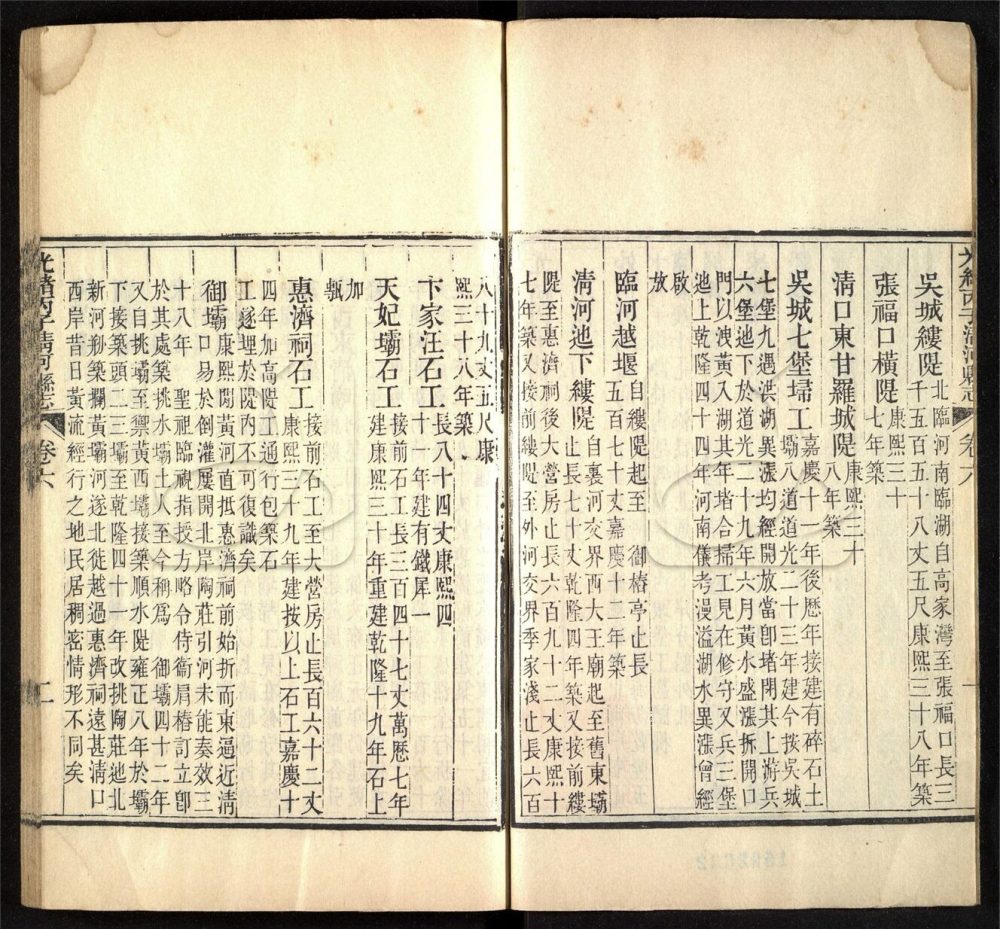 吳城縷隄北臨河南臨湖自高家灣至張福口長三
千五百五十八丈五尺康熙三十八年築
張福口橫隄康熙三十
七年築
清口東甘羅城隄康熙三十
八年築
吳城七堡埽工嘉慶十一年後歷年接建有碎石土
壩八道道光二十三年建今按吳城
七堡九遇洪湖異漲均經開放當卽堵閉其上游兵
六堡迤下於道光二十九年六月黃水盛漲拆開口
門以洩黃入湖其年堵合掃工見在修守又兵三堡
迤上乾隆四十年河南儀考漫溢湖水異漲曾經
啟
放
臨河越堰自縷隄起至 御椿亭止長
五百七十丈嘉慶十二年築
清河迤下縷隄自裏河交界西大王廟起至舊東壩
止長七十丈乾隆四年築又接前縷
隄至惠濟祠後大營房止長六百九十二丈康熙十
七年築又接前縷隄至外河交界季家淺止長六百
光緒丙子清河縣志
卷六
一
八十九丈五尺康
熙三十八年築
卞家汪石工長八十四丈康熙四
十一年建有鐵犀一
天妃壩石工接前石工長三百四十七丈萬歷七年
建康熙三十年重建乾隆十九年石上
加
甎
惠濟祠石工接前石工至大營房止長百六十三丈
康熙三十九年建按以上石工嘉慶十
四年加高隄工通行包築石
工遂埋於隄內不可復識矣
御壩康熙閒黃河直抵惠濟祠前始折而東過近淸
口易於倒灌屢開北岸陶莊引河未能奏效三
十八年 聖祖臨視指授方略令侍衞肩樁訂立卽
於其處築挑水壩土人至今稱爲 御壩四十二年
又自挑壩至禦黃西壩接築順水隄雍正八年於壩
下接築頭二三壩至乾隆四十一年改挑陶莊迤北
新河剏築攔黃壩河遂北徙越過惠濟祠遠甚淸口
西岸昔日黃流經行之地民居稠密情形不同矣
光緒丙子清河縣志
卷六
二